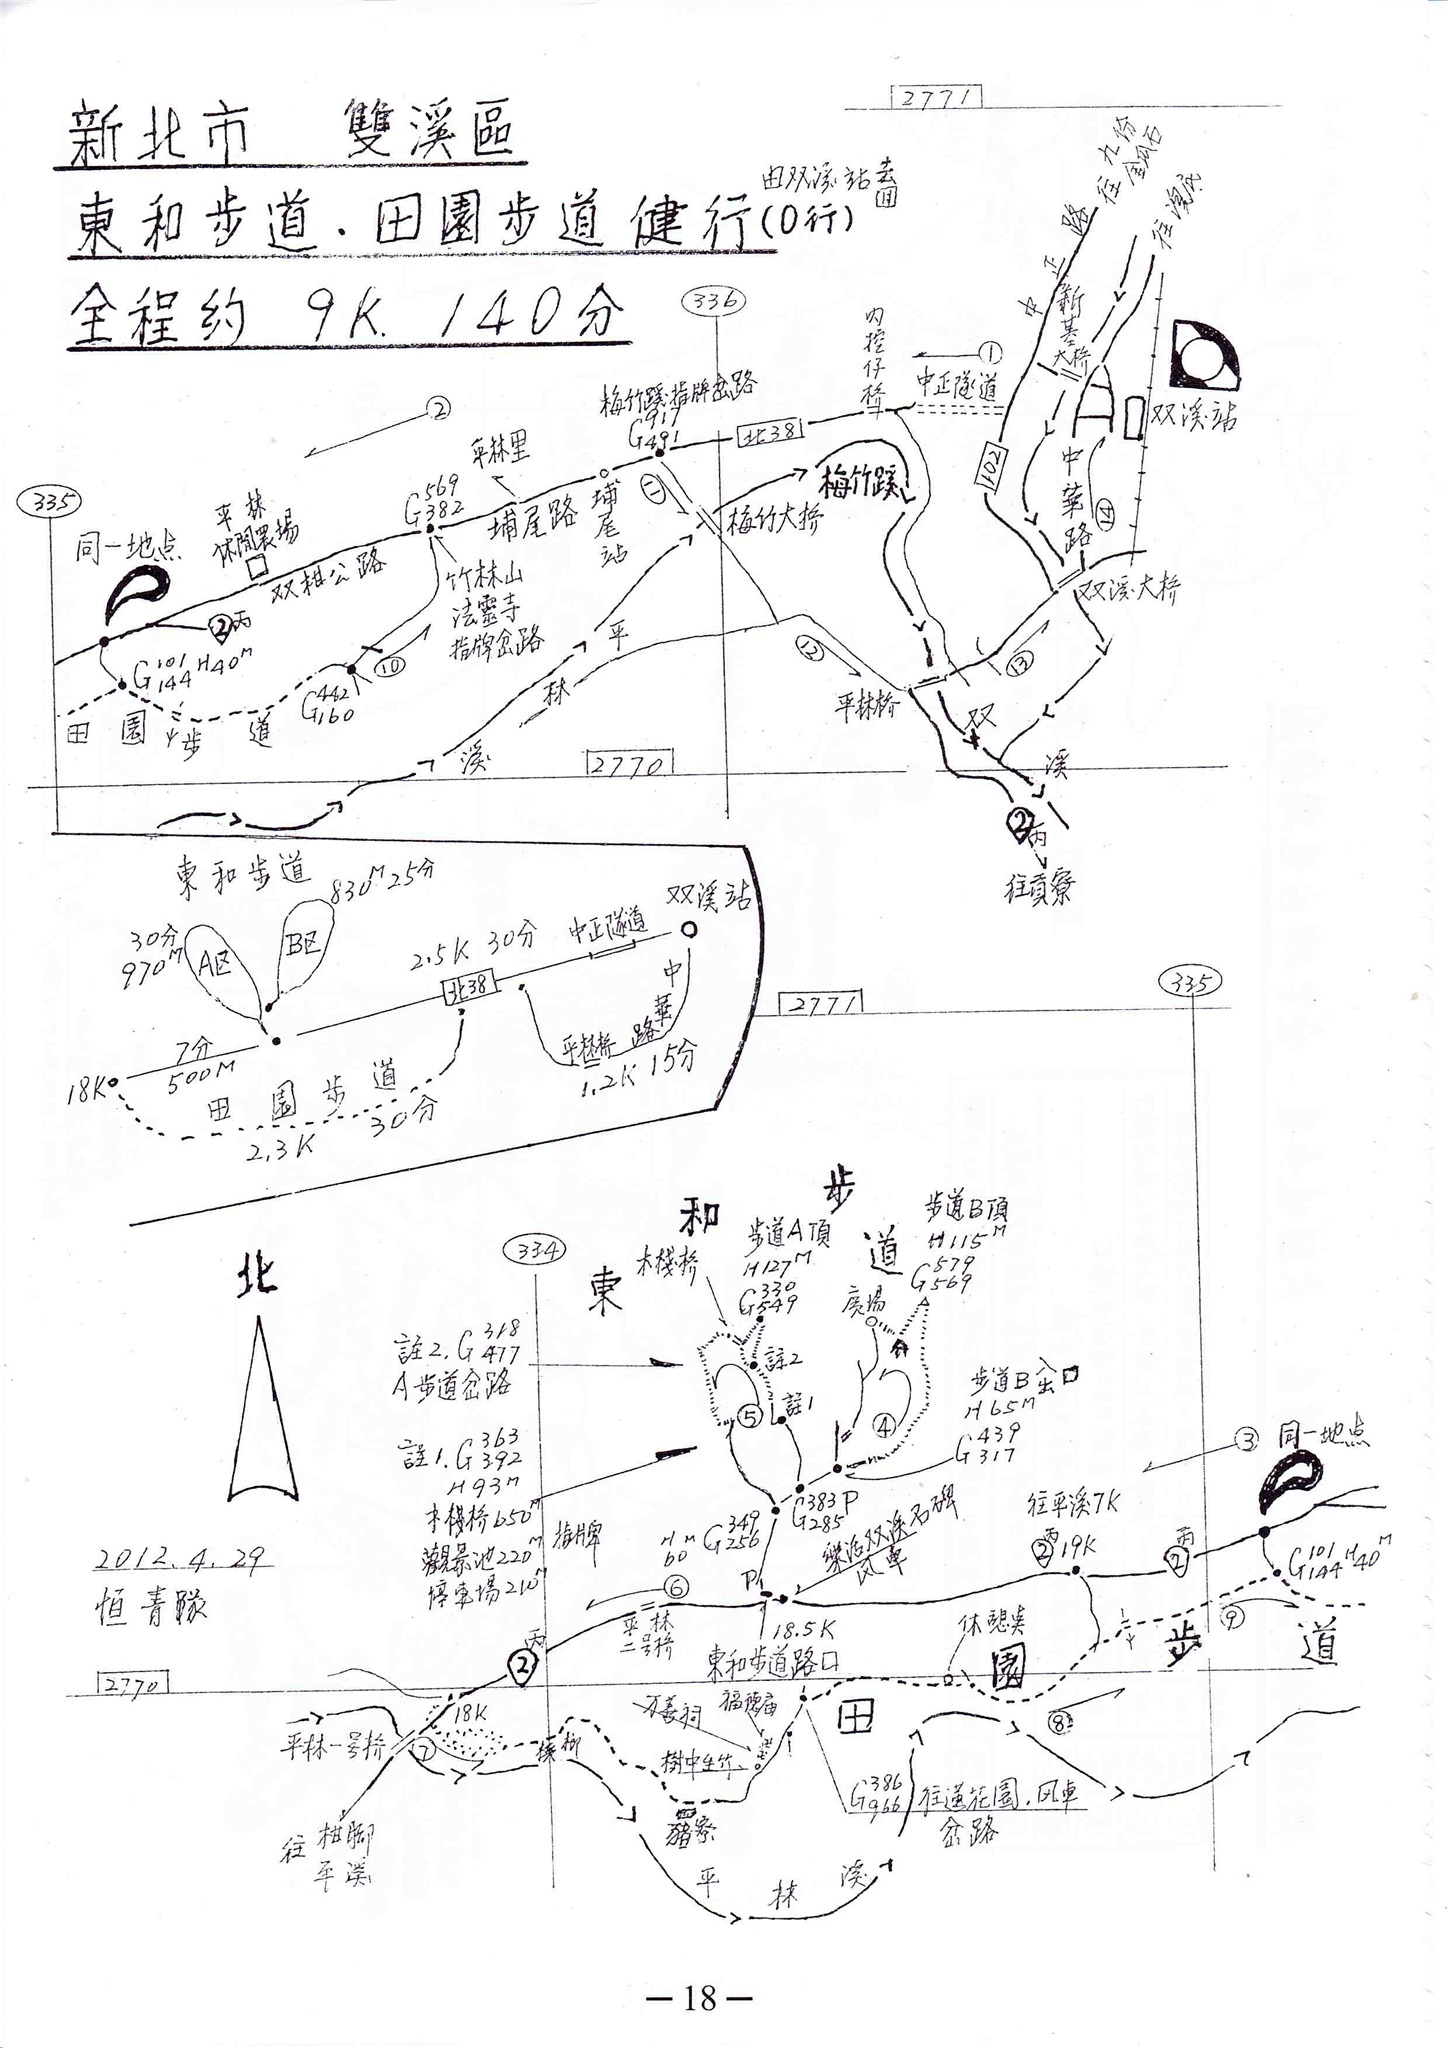 新北市 雙溪區
東和步道.田園步道 健行(O行)
由双溪站去回
全程約 9K. 140分
2771
往九份
金瓜石
中正路
新基大桥
336
內挖仔桥
①
中正隧道
双溪站
②
梅竹蹊指牌岔路
G917
491
北38
102
中華路
⑭
335
同一地点
平林
休閒農場
G569
382
平林里
埔尾路
埔尾站
⑪
梅竹大桥
梅竹蹊
双柑公路
竹林山
法靈寺
指牌岔路
双溪大桥
②丙
G101
144 H40M
⑩
G442
160
⑫
⑬
平林桥
田園步道
平林溪
双溪
2770
②丙
往貢寮
東和步道
830M 25分
30分
970M
A区
B区
2.5K 30分
中正隧道
双溪站
北38
中華路
平林桥
1.2K 15分
7分
500M
18K
田園步道
2.3K 30分
2771
335
北
334
東和步道
木棧桥
步道A頂
H127M
G330
549
步道B頂
H115M
G579
569
廣場
註2. G318
477
A步道岔路
註2
註1
⑤
④
步道B出入口
H65M
G439
317
註1. G363
392
H93M
木棧桥650M
觀景池220M
停車場210M
指牌
H60M
G349
256
G383
285
P
縱浴双溪石碑
风車
③
同一地点
往平溪7K
②丙
19K
②丙
G101
144 H40M
2012.4.29
恒青隊
⑥
平林二号桥
P
18.5K
東和步道路口
休憩点
⑨
②丙
2770
18K
平林一号桥
⑦
檳榔
万善祠
福德庙
樹中生竹
田園步道
⑧
G386
966
往蓮花園.风車
岔路
豬寮
往柑腳
平溪
平林溪
—18—